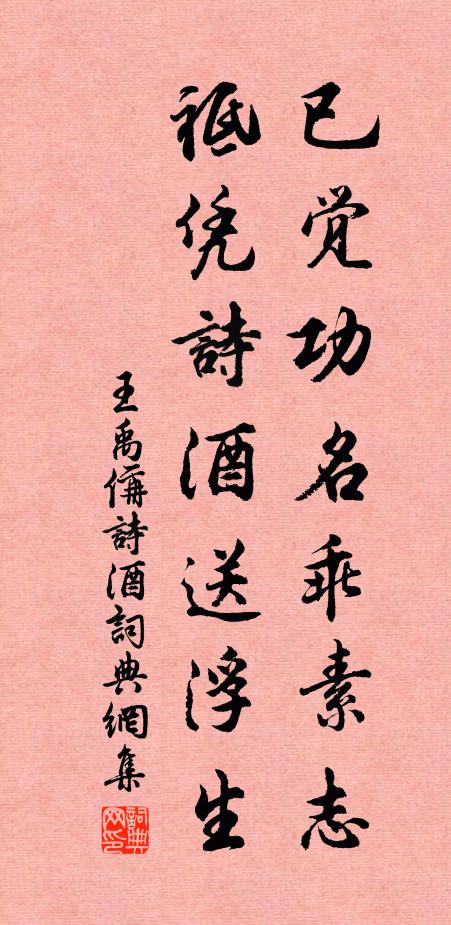 已觉功名乖素志
祗凭詩酒送浮生
王禹偁詩酒詞典網集
詞典网印